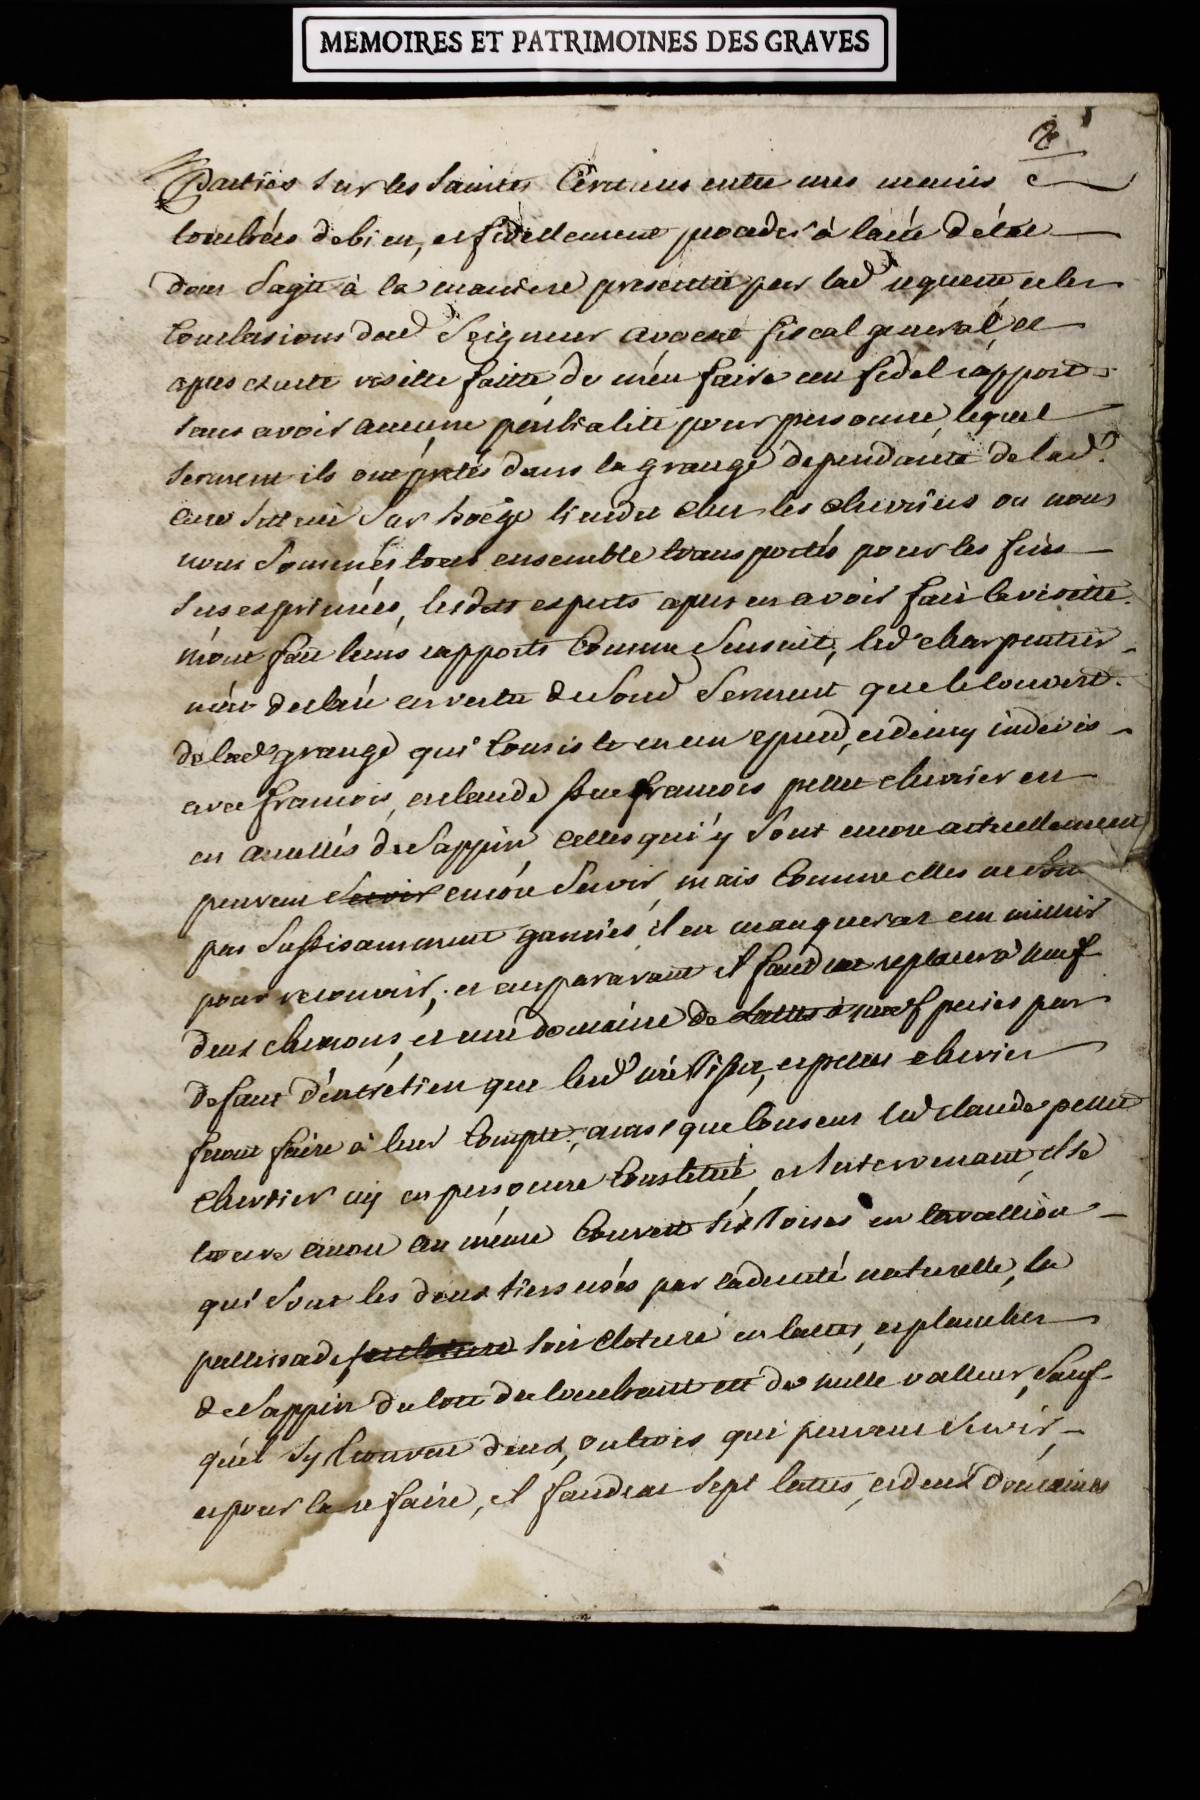 MEMOIRES ET PATRIMOINES DES GRAVES
2
Parties sur les saintes Ecritures entre mes mains
de bien, et fidellement proceder à l'acte d'état
dont s'agit à la maniere presentte par lad requette et les
Conclusions dud Seigneur avocat fiscal general, et
apres exacte visitte faitte de m'en faire un fidel rapport
sans avoir aucune partialité pour personne, lequel
serment ils ont prétés dans la grange dependante de lad
cure sur hoége lieudit Chez les chevriers ou nous
nous sommes tous ensemble transportés pour les fins
susexprimées, lesdits experts apres en avoir fait la visitte
m'ont fait leurs rapports Comme s'ensuit, led charpentier
m'a declaré en vertu de son Serment que le couvert
de lad grange qui Consiste en un et demy indivis
avec francois, et claude francois pellet chevrier en
en ancelles de Sappin Celles qui y sont encore actuellement
peuvent servir encore Servir, mais Comme elles ne son
pas suffisamment garnies il en manquerat un millier
pour recouvrir, et auparavant il faudrat replacer à neuf
deux chevrons, et une de lattes à neuf peries par
defaut d'entretien que led et pellet chevrier
feront faire à leur Compte, que led claude pellet
Chevrier icy en personne Constitué, et intervenant, il se
trouve encore au même Couvert six Toises en
qui sont les deux tiers usés par caducité naturelle, la
pallissade, soit cloture en lattes, et planches
de Sappin du coté du est de nulle valleur, sauf
qu'il s'y trouvent deux, ou trois qui peuvent servir
et pour la refaire, il faudrat sept lattes, et deux douzaines